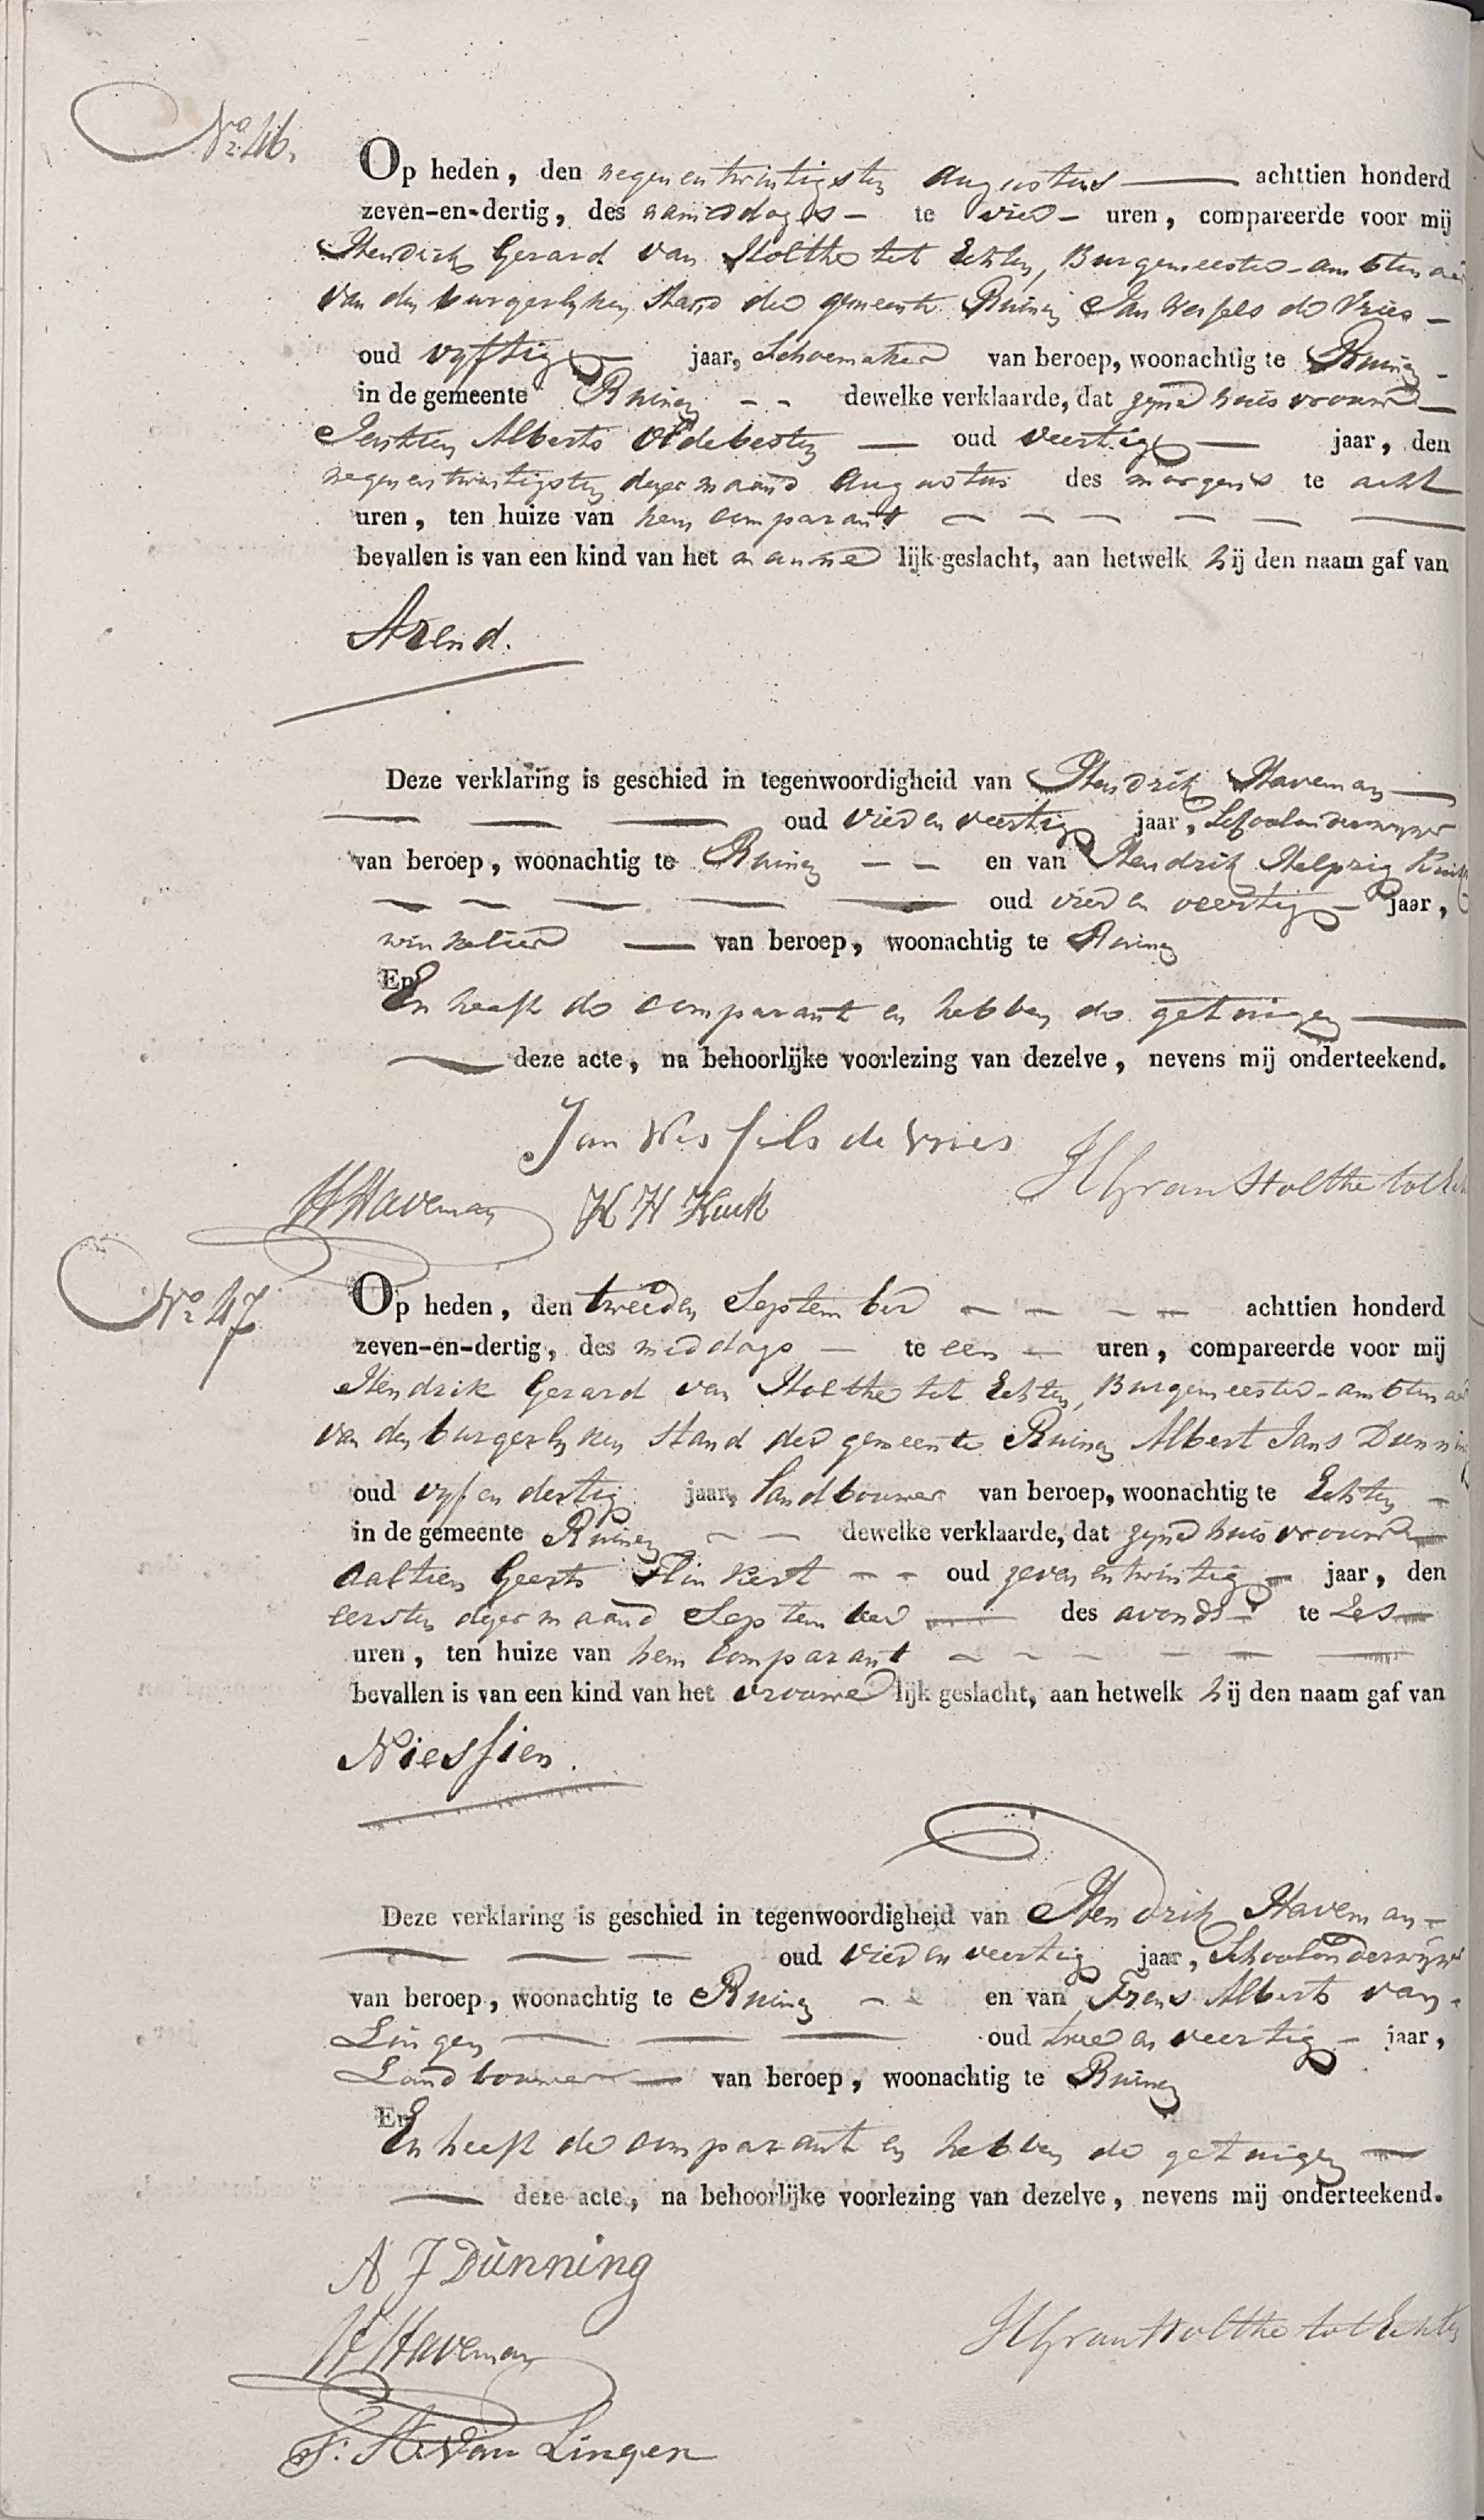 No. 46.
Op heden, den negenentwintigsten Augustus achttien honderd
zeven-en-dertig, des namiddags te vier uren, compareerde voor mij
Hendrik Gerard van Holthe tot Echten, Burgemeester-ambtenaar
van den burgerlyken stand der gemeente Ruinen Jan Wessels de Vries
oud vyftig jaar, Schoenmaker van beroep, woonachtig te Ruinen
in de gemeente Ruinen dewelke verklaarde, dat zyne huisvrouw
Jantien Alberts Oldebesten oud veertig jaar, den
negenentwintigsten dezer maand Augustus des morgens te acht
uren, ten huize van hem comparant
bevallen is van een kind van het manne lijk geslacht, aan hetwelk hij den naam gaf van
Arend.
Deze verklaring is geschied in tegenwoordigheid van Hendrik Haveman
oud vier en veertig jaar, Schoolonderwyzer
van beroep, woonachtig te Ruinen en van Hendrik Helprig
oud vier en veertig jaar,
winkelier van beroep, woonachtig te Ruinen
En
En heeft de comparant en hebben de getuigen
deze acte, na behoorlijke voorlezing van dezelve, nevens mij onderteekend.
Jan Wessels de Vries
HGvanHolthe tot
HHaveman H H Kuik
No. 47
Op heden, den tweeden September achttien honderd
zeven-en-dertig, des middags te een uren, compareerde voor mij
Hendrik Gerard van Holthe tot Echten, Burgemeester-ambtenaar
van den burgerlyken stand der gemeente Ruinen Albert Jans Dunning
oud vyf en dertig jaar, Landbouwer van beroep, woonachtig te Echten
in de gemeente Ruinen dewelke verklaarde, dat zyne huisvrouw
Aaltien Geerts Flinkert oud zeven en twintig jaar, den
eersten dezer maand September des avonds te zes
uren, ten huize van hem comparant
bevallen is van een kind van het vrouwe lijk geslacht, aan hetwelk hij den naam gaf van
Niessien.
Deze verklaring is geschied in tegenwoordigheid van Hendrik Haveman
oud vier en veertig jaar, Schoolonderwyzer
van beroep, woonachtig te Ruinen en van Frens Alberts van
Lingen oud twee en veertig jaar,
Landbouwer van beroep, woonachtig te Ruinen
En
En heeft de comparant en hebben de getuigen
deze acte, na behoorlijke voorlezing van dezelve, nevens mij onderteekend.
A J Dunning
HHaveman HGvanHolthe tot Echten
F: A: van Lingen